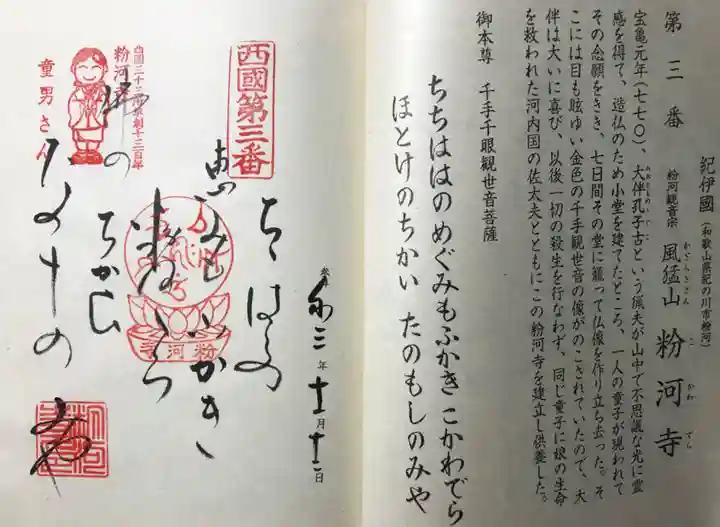 紀伊國
(和歌山県紀の川市粉河)
第三番
粉河観音宗
風猛山
かざらぎさん
粉河寺
こ かわ でら
宝亀元年(七七〇)、大伴孔子古という猟夫が山中で不思議な光に霊
おおとものくじこ
感を得て、造仏のため小堂を建てたところ、一人の童子が現われて
その念願をきき、七日間その堂に籠って仏像を作り立ち去った。そ
こには目も眩ゆい金色の千手観世音の像がのこされていたので、大
伴は大いに喜び、以後一切の殺生を行なわず、同じ童子に娘の生命
を救われた河内国の佐太夫とともにこの粉河寺を建立し供養した。
御本尊 千手千眼観世音菩薩
ちちははの めぐみもふかき こかわでら
ほとけのちかい たのもしのみや
令和三年十一月十二日
西國第三番
ちゝはゝの
恵みも ふかき
粉河でら
佛の
ちかひ
たのもしの
粉河寺
童男さん